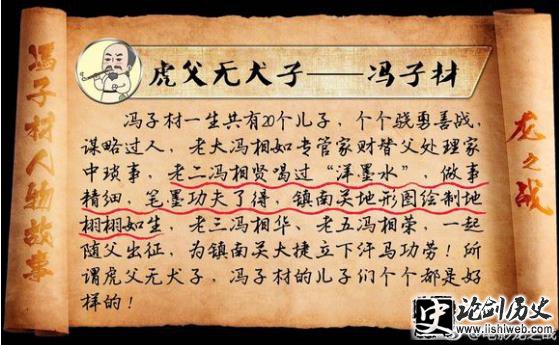 虎父无犬子——冯子材
冯子材一生共有20个儿子，个个骁勇善战，
谋略过人，老大冯相如专管家财替父处理家
中琐事，老二冯相贤喝过“洋墨水”，做事
精细，笔墨功夫了得，镇南关地形图绘制地
栩栩如生，老三冯相华、老五冯相荣，一起
随父出征，为镇南关大捷立下汗马功劳！所
谓虎父无犬子，冯子材的儿子们个个都是好
样的！
冯子材人物故事
龙之战
史
论剑历史
www.lishiweb.com